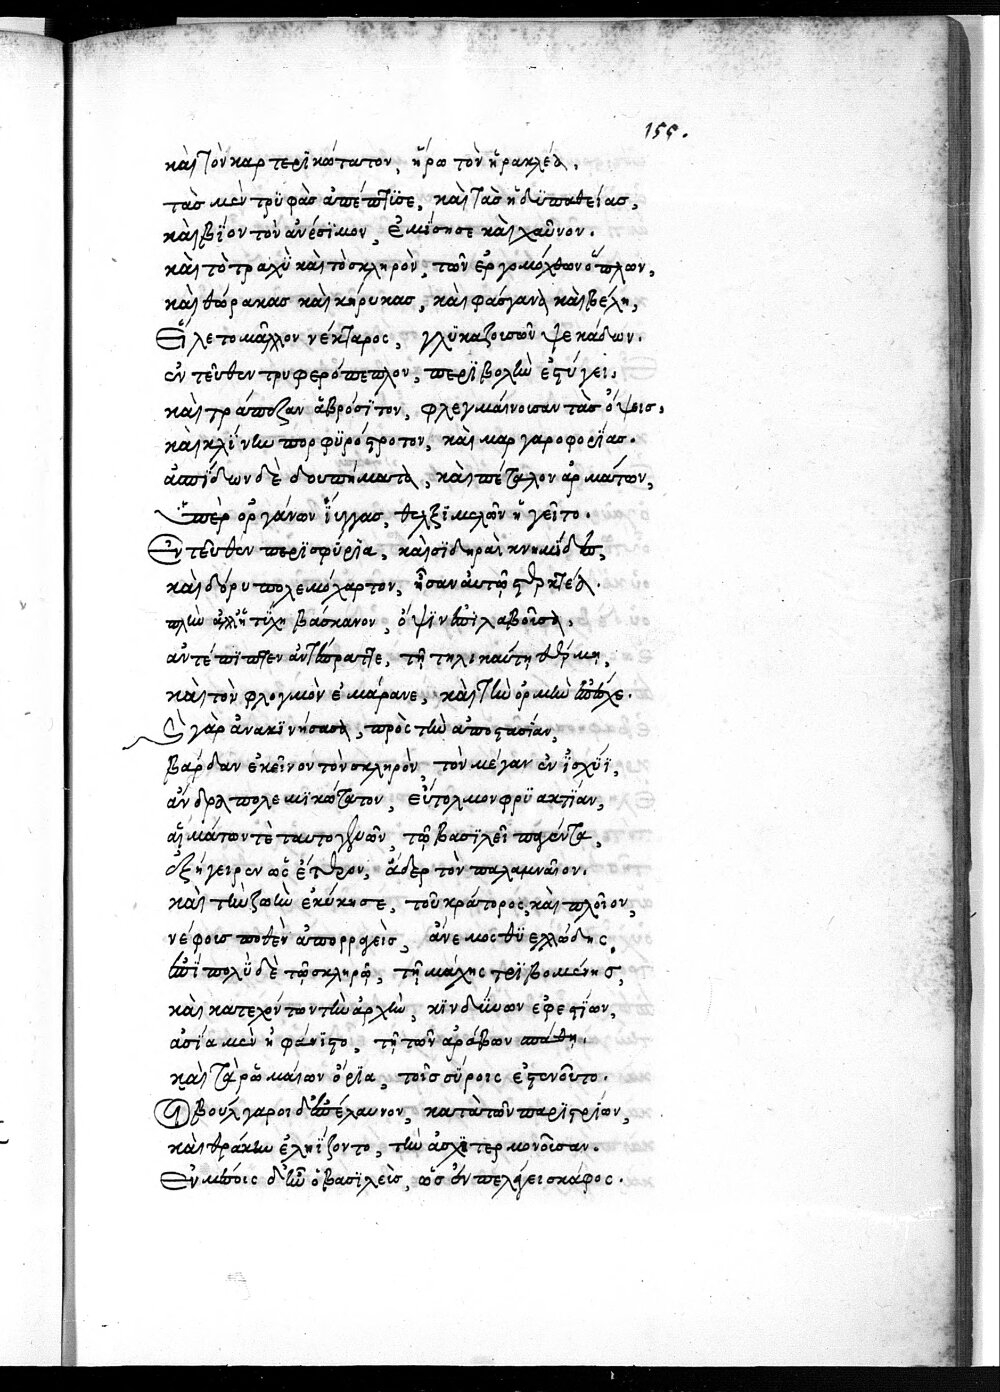 155.
καὶ τὸν καρτερικώτατον, ἥρω τὸν ἡρακλέα,
τὰς μὲν τρϋφὰς ἀπέπτϊσε, καὶ τὰς ἡδϋπαθείας,
καὶ βίον τὸν ἀνέσϊμον, ἐμΐσησε καὶ χαῦνον.
καὶ τὸ τραχὺ καὶ τὸ σκληρὸν, τῶν ἐργομόχθων ὅπλων,
καὶ θώρακας καὶ κήρυκας, καὶ φάσγανα καὶ βέλη,
Εἵλετο μᾶλλον νέκταρος, γλϋκαζουσῶν ψεκάδων.
ἐν τεῦθεν τρυφερόπεπλον, περϊβολὴν ἐστύγει,
καὶ τράπεζαν ἁβρόσϊτον, φλεγμαίνουσαν τὰς ὄψεις,
καὶ κλίνην πορφϋρόστροτον, καὶ μαργαροφορΐας.
ἀσπΐδων δὲ δουπήματα, καὶ πέταλον ἁρμάτων,
Ὑπὲρ ὀργάνων ἴϋγγας, θελξϊμελῶν ἡγεῖτο.
Ἐντεῦθεν περϊσφύρϊα, καὶ σϊδηραὶ κνημΐδες,
καὶ δόρυ πολεμόχαρτον, ἦσαν αὐτῷ στερκτέα.
πλὴν ἀλλ' ἡ τύχη βάσκανον, ὄψϊν ἐπϊλαβοῦσα,
ἀντέπϊπτεν ἀντέπραττε, τῇ τηλικαύτῃ θέρμῃ,
καὶ τὸν φλογμὸν ἐμάρανε, καὶ τὴν ὁρμὴν ἐπέσχε.
γὰρ ἀνακϊνήσασα, πρὸς τὴν ἀποστασίαν,
βάρδαν ἐκεῖνον τὸν σκληρὸν, τὸν μέγαν ἐν ἰσχύϊ,
ἄνδρα πολεμϊκώτατον, εὔτολμον φρϋακτΐαν,
αἱμάτων τὲ ταυτογενῶν, τῷ βασϊλεῖ
ἐξήγειρεν ὡς ἕτερον, ἄδερ τὸν παλαμναῖον.
καὶ τὴν ζωὴν ἐκύκησε, τοῦ κράτορος, καὶ πλοῖον,
νέφους ποθὲν ἀπορραγεὶς, ἄνεμος θϋελλώδης.
ἐπϊπολὺ δὲ τῷ σκληρῷ, τῆς μάχης τρϊβομένης,
καὶ κατεχόντων τὴν ἀρχὴν, κϊνδύνων ἐφεστΐων,
ἀσία μὲν ἠφάνϊστο, τῇ τῶν ἀράβων σπάθῃ.
καὶ τὰ ῥωμαίων ὅρϊα, τοῖς σύροις ἐστενοῦτο.
Οἱ βούλγαροι δ' ἐπέλαυνον, κατὰ τῶν παρϊστρΐων,
καὶ θράκην ἐληΐζοντο, τὴν ἀσχϊτερμονοῦσαν.
Ἐν μέσοις δ' ἦν ὁ βασϊλεὺς, ὡς ἐν πελάγει σκάφος.